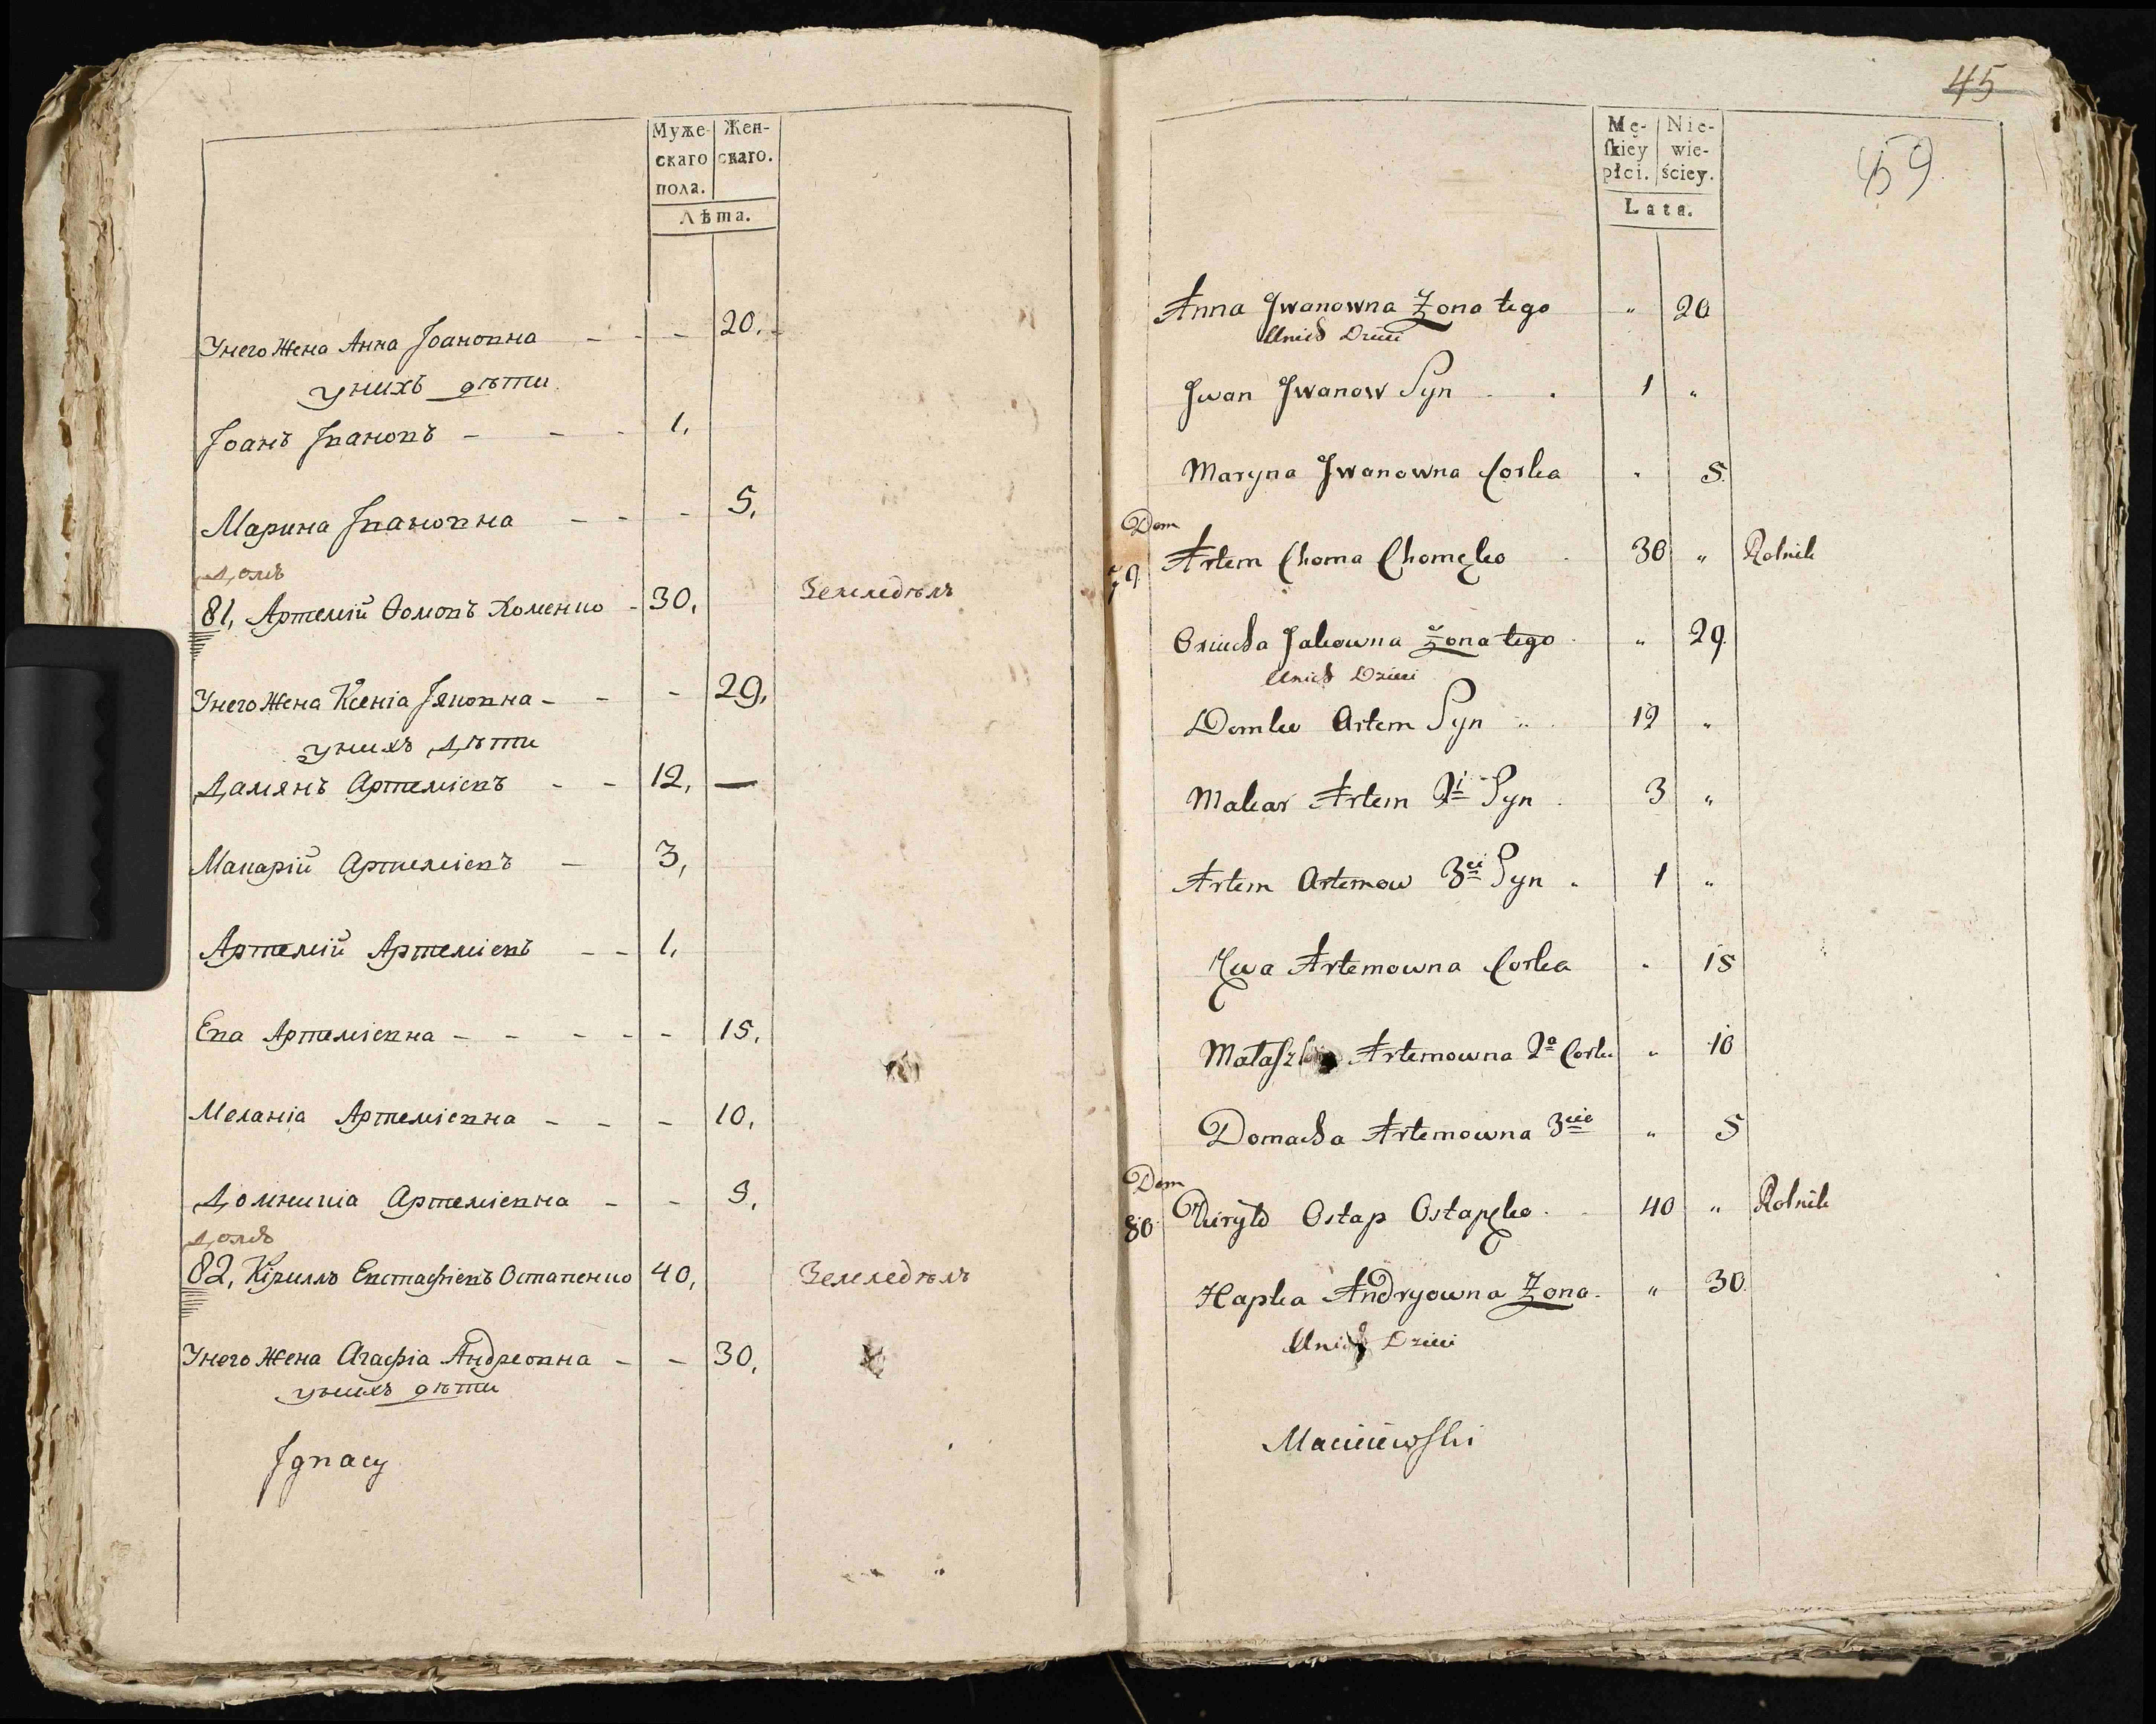 Муже- Жен-
скаго скаго.
пола.
Лѣта.
У него жена Анна Іоановна - - - 20.
у нихъ дѣти
Іоанъ Івановъ - - - 1,
Марина Івановна - - - 5,
Домъ
81, Артемій Ѳомовъ Хоменко - 30, Земледѣлъ
У него жена Ксенія Іяковна - - - 29,
у нихъ дѣти
Дамянъ Артеміевъ - - 12, —
Макарій Артеміевъ - 3,
Артемій Артеміевъ - - 1,
Ева Артеміевна - - - - - 15,
Меланія Артеміевна - - - 10,
Домникія Артеміевна - - 5,
Домъ
82, Кірилъ Евстафіевъ Остапенко 40, Земледѣлъ
У него жена Агафія Андреовна - - 30,
у нихъ дѣти
Ignacy
45
59
Mę- Nie-
ſkiey wie-
płci. ściey.
Lata.
Anna Jwanowna Żona tego " 20
Unich Dzieci
Jwan Jwanow Syn 1 "
Maryna Jwanowna Corka " 5
Dom
79 Artem Choma Chomęko 30 " Rolnik
Oxiucha Jakowna żona tego " 29
Unich Dzieci
Demko Artem Syn 12 "
Makar Artem 2i Syn 3 "
Artem Artemow 3ci Syn 1 "
Ewa Artemowna Corka " 15
Małaszka Artemowna 2a Corka " 10
Domacha Artemowna 3cia " 5
Dom
80 Kiryło Ostap Ostapęko 40 " Rolnik
Hapka Andryowna Żona " 30
Unich Dzieci
Macieiewſki